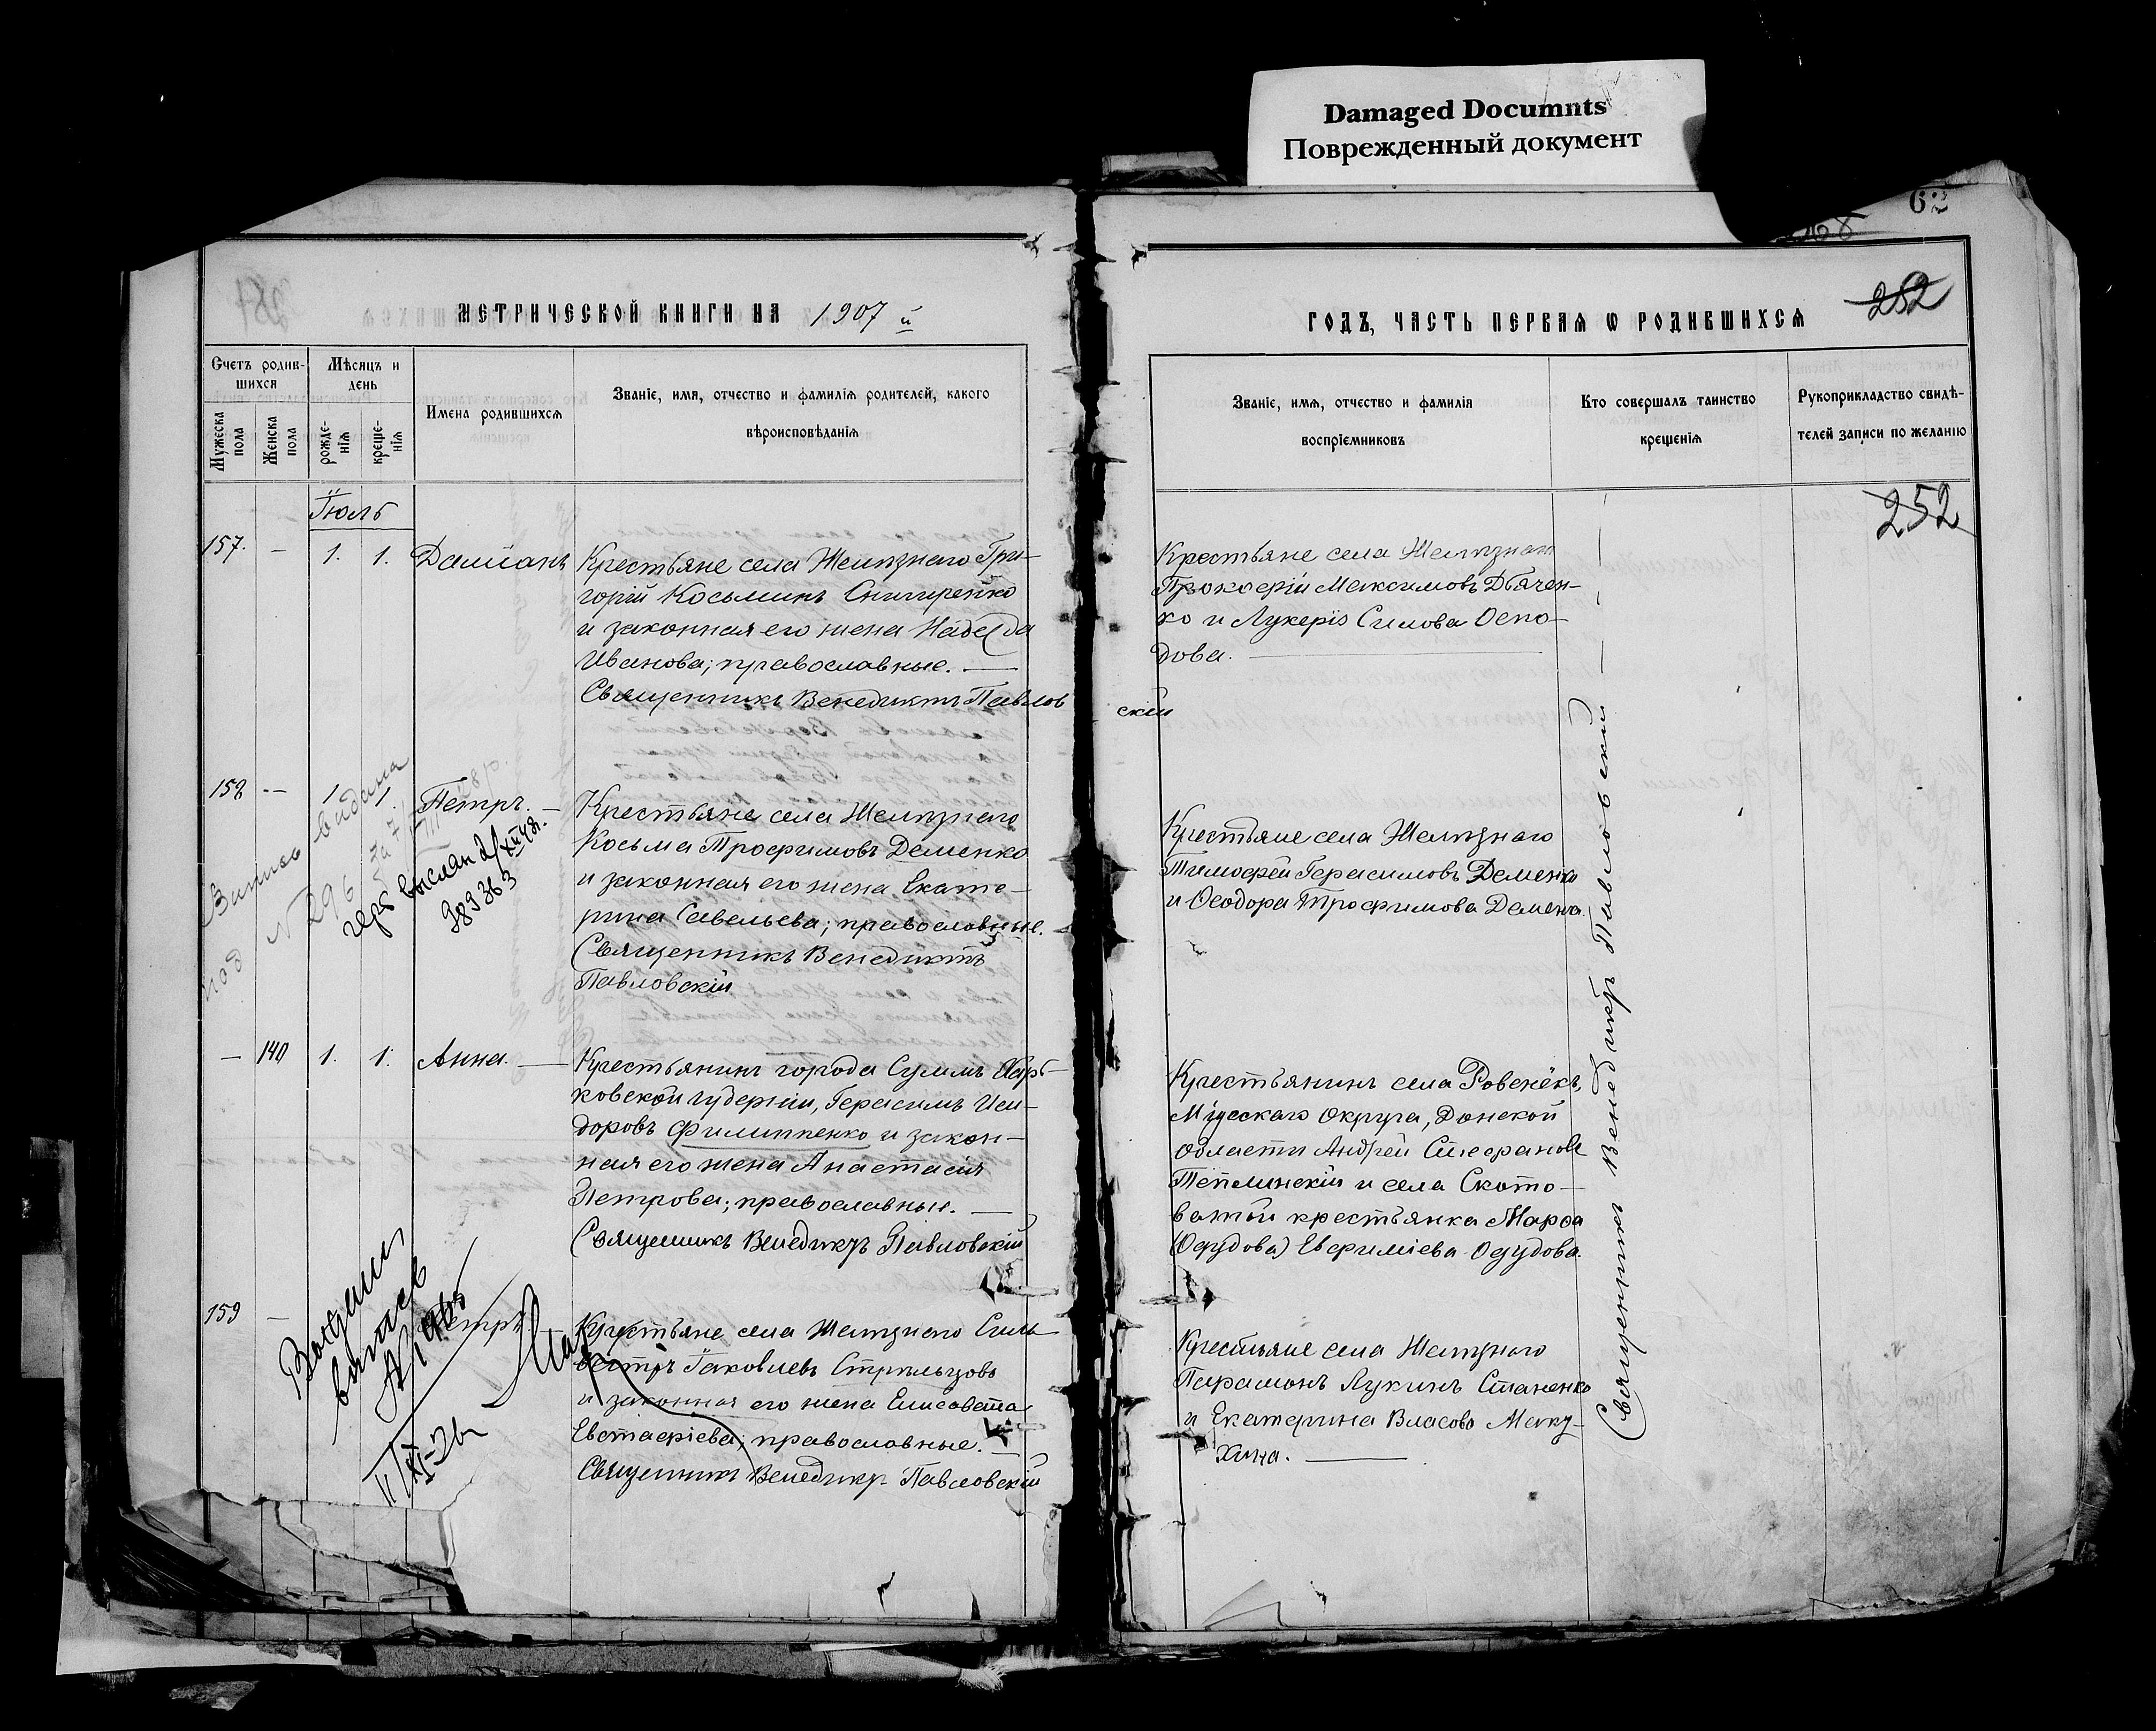 Damaged Documnts
Поврежденный документ
62
252
МЕТРИЧЕСКОЙ КНИГИ НА 1907 й
ГОДЪ, ЧАСТЬ ПЕРВАЯ Ѡ РОДИВШИХСЯ
Счетъ родив-
шихся
Мужеска
пола
Женска
пола
Мѣсяцъ и
день
рожде-
нія
креще-
нія
Имена родившихся
Званіе, имя, отчество и фамилія родителей, какого
вѣроисповѣданія
Званіе, имя, отчество и фамилія
воспріемниковъ
Кто совершалъ таинство
крещенія
Рукоприкладство свидѣ-
телей записи по желанію
252
Іюль
157. — 1. 1. Даміанъ
Крестьяне села Желѣзнаго Гри-
горій Косьминъ Снигиренко
и законная его жена Надежда
Иванова; православные. —
Священникъ Венедиктъ Павлов
скій
Крестьяне села Желѣзнаго
Прокофій Максимовъ Дьячен-
ко и Лукерія Силова
дова. —
158 — 1. 1. Петръ. —
Крестьяне села Желѣзнаго
Косьма Трофимовъ Деменко
и законная его жена Екате-
рина Савельева; православные.
Священникъ Венедиктъ
Павловскій
Крестьяне села Желѣзнаго
Тимофей Герасимовъ Деменко
и Ѳеодора Трофимова Деменко.
выдана
под № 296
герб выслан 2/XII 48г.
389363
— 140 1. 1. Анна. —
Крестьянинъ города Сумъ Харь-
ковской губерніи, Герасимъ Иси-
доровъ Филипненко и закон-
ная его жена Анастасія
Петрова; православные. —
Священникъ Венедиктъ Павловскій
Крестьянинъ села Ровенёкъ,
Міусскаго Округа, Донской
области Андрей Стефановъ
Теплинскій и села Ското-
ватой крестьянка Марфа
(Одудова) Евфиміева Одудова.
159 —
Петръ.
Крестьяне села Желѣзнаго Силь-
вестръ Іаковлевъ Стрѣльцовъ
и законная его жена Елисавета
Евстафіева; православные. —
Священникъ Венедиктъ Павловскій
Крестьяне села Желѣзнаго
Парамонъ Лукинъ Стаценко
и Екатерина Власова Маку-
хина. —
Священникъ Венедиктъ Павловскій —